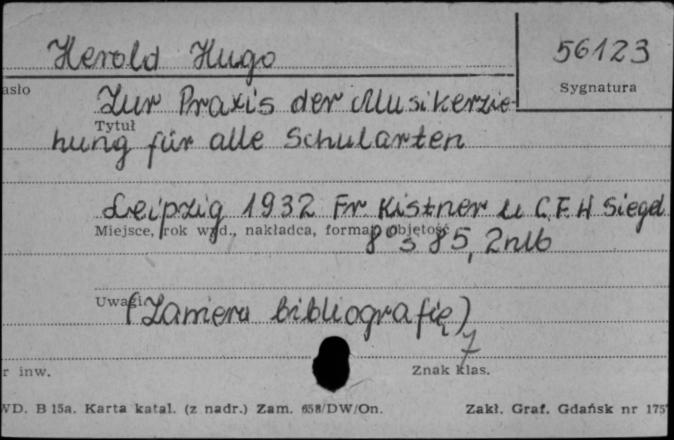 Herold Hugo
56123
asło
Sygnatura
Zur Praxis der Musikerzie-
Tytuł
hung für alle Schularten
Leipzig 1932 Fr Kistner u C.F.W Siegel
Miejsce, rok wyd., nakładca, format, objętość
8° s 85, 2nlb
Uwagi
(Zawiera bibliografię)
7
r inw.
Znak klas.
WD. B 15a. Karta katal. (z nadr.) Zam. 658/DW/On.
Zakł. Graf. Gdańsk nr 175